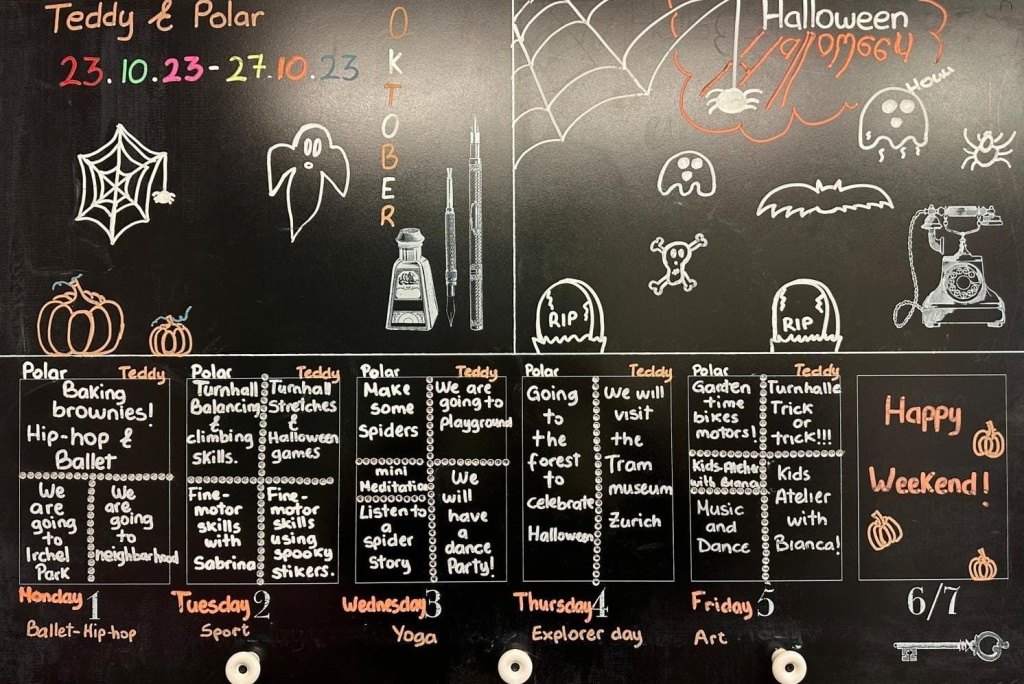 Teddy & Polar
23.10.23-27.10.23
OKTOBER
Halloween
Halloween
Houu
RIP
RIP
Polar Teddy
Baking
brownies!
Hip-hop &
Ballet
We
are
going
to
Irchel
Park
We
are
going
to
neighbarhood
Monday 1
Ballet-Hip-hop
Polar Teddy
Turnhall
Balancing
&
climbing
skills.
Turnhall
Stretches
&
Halloween
games
Fine-
motor
skills
with
Sabrina
Fine-
motor
skills
using
spooky
stikers.
Tuesday 2
Sport
Polar Teddy
Make
some
spiders
We are
going to
playground
mini
Meditation
Listen to
a
spider
Story
We
will
have
a
dance
Party!
Wednesday 3
Yoga
Polar Teddy
Going
to
the
forest
to
celebrate
Halloween
We will
visit
the
Tram
museum
Zurich
Thursday 4
Explorer day
Polar Teddy
Garden
time
bikes
motors!
Turnhalle
Trick
or
trick!!!
Kids-Atelier
with Bianca
Music
and
Dance
Kids
Atelier
with
Bianca!
Friday 5
Art
Happy
Weekend!
6/7